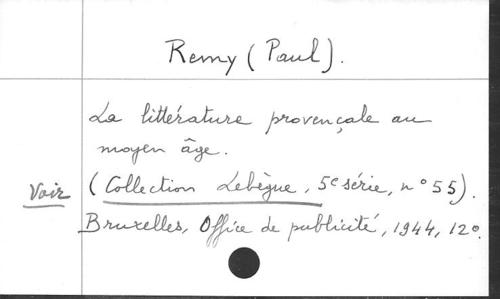 Remy (Paul).
La littérature provençale au
moyen âge.
Voir (Collection Lebègue, 5e série, n° 55).
Bruxelles, Office de publicité, 1944, 12°.